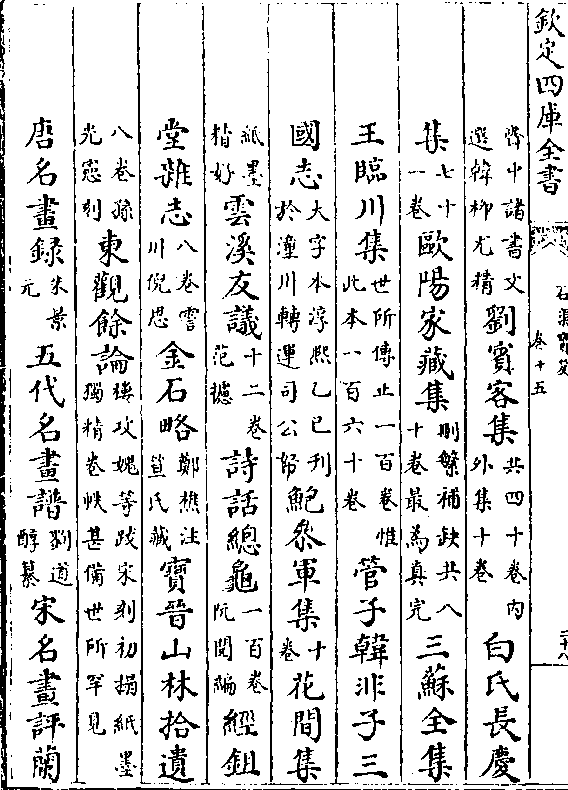 欽定四庫全書
石渠寶笈
卷十五
中諸書文
選韓柳尤精
劉賓客集
共四十卷内
外集十卷
白氏長慶
集
七十
一卷
歐陽家藏集
刪繁補缺共八
十卷最為真完
三蘇全集
王臨川集
世所傳止一百卷惟
此本一百六十卷
管子韓非子三
國志
大字本淳熙乙巳刊
於潼川轉運司公帑
鮑參軍集
十
卷
花間集
紙墨
精好
雲溪友議
十二卷
范攄
詩話總龜
一百卷
阮閲編
經鉏
堂雜志
八卷霅
川倪思
金石略
鄭樵注
笪氏藏
寶晉山林拾遺
八卷孫
光憲刻
東觀餘論
樓攻媿等跋宋刻初搨紙墨
獨精卷帙甚備世所罕見
唐名畫録
朱景
元
五代名畫譜
劉道
醇纂
宋名畫評蘭